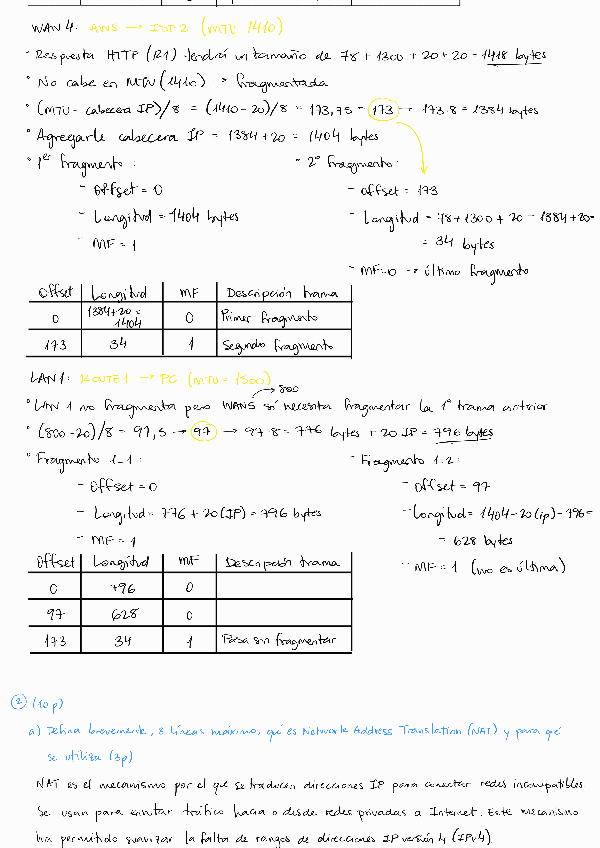 WAN 4: AWS → ISP2 (MTU 1410)
· Respuesta HTTP (R1) tendrá un tamaño de 78 + 1300 + 20 + 20 = 1418 bytes
· No cabe en MTU (1410) → fragmentada
· (MTU - cabecera IP)/8 = (1410-20)/8 = 173,75 = 173 → 173·8 = 1384 bytes
· Agregarle cabecera IP = 1384 + 20 = 1404 bytes
· 1er fragmento: - 2º fragmento:
- Offset = 0 - offset = 173
- Longitud = 1404 bytes - Longitud = 78 + 1300 + 20 - 1384 + 20 =
- MF = 1 = 34 bytes
- MF=0 → último fragmento
Offset Longitud MF Descripción trama
0 1384+20 = 1404 0 Primer fragmento
173 34 1 Segundo fragmento
LAN1: ROUTE1 → PC (MTU = 1500)
→ 800
· LAN 1 no fragmenta pero WAN5 sí necesita fragmentar la 1ª trama anterior
· (800-20)/8 = 97,5 → 97 → 97·8 = 776 bytes + 20 IP = 796 bytes
· Fragmento 1-1: - Fragmento 1-2:
- Offset = 0 - Offset = 97
- Longitud = 776 + 20 (IP) = 796 bytes - Longitud = 1404 - 20 (ip) - 796 =
- MF = 1 = 628 bytes
- MF = 1 (no es última)
Offset Longitud MF Descripción trama
0 796 0
97 628 0
173 34 1 Pasa sin fragmentar
2 (10 p)
a) Defina brevemente, 8 líneas máximo, qué es Network Address Translation (NAT) y para qué
se utiliza (3p)
NAT es el mecanismo por el que se traducen direcciones IP para conectar redes incompatibles
Se usan para enrutar tráfico hacia o desde redes privadas a Internet. Este mecanismo
ha permitido suavizar la falta de rangos de direcciones IP versión 4 (IPv4).